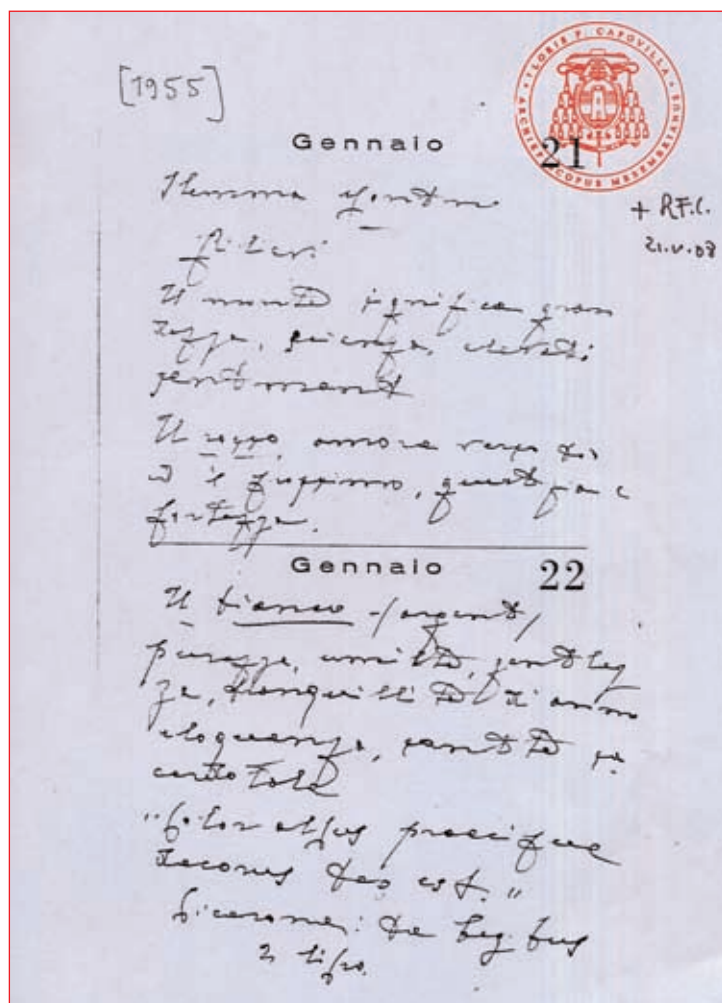 [1955]
LORIS F. CAPOVILLA ARCHIEPISCOPUS MESEMBRIANUS
Gennaio 21
21.V.08
Stemma
Colori:
Il significa gran
dezza, scienza, elevati
sentimenti
Il rosso, amore verso Dio
e il prossimo, giustizia e
fortezza.
Gennaio 22
Il bianco /argento/
purezza, umiltà, gentilez
za, tranquillità di animo
eloquenza, santità sa
cerdotale
"Color albus praecipue
decorus deo est."
Cicerone: de legibus
2 libro.